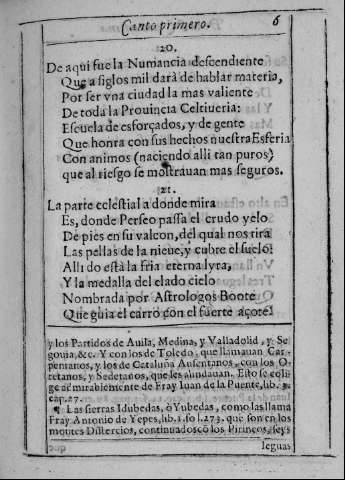 Canto primero. 6
20.
De aqui fue la Numancia descendiente
Que a siglos mil darà de hablar materia,
Por ser vna ciudad la mas valiente
De toda la Prouincia Celtiueria:
Escuela de esforçados, y de gente
Que honra con sus hechos nuestra Esferia
Con animos (naciendo alli tan puros)
que al riesgo se mostrauan mas seguros.
21.
La parte celestial a donde mira
Es, donde Perseo passa el crudo yelo
De pies en su valcon, del qual nos tira
Las pellas de la nieue, y cubre el suelo:
Alli do està la fria eterna lyra,
Y la medalla del elado cielo
Nombrada por Astrologos Boote
Que guia el carro con el fuerte açote.
y los Partidos de Auila, Medina, y Valladolid, y Se
gouia, &c. Y con los de Toledo, que llamauan Car-
pentanos, y los de Cataluña Ausentanos, con los O-
retanos, y Sedetanos, que les ayudauan. Esto se colige
ge admirablemente de Fray Iuan de la Puente, lib. 3.
cap. 27.
¶ Las sierras Idubedas, ò Yubedas, como las llama
Fray Antonio de Yepes, lib. 1. fol. 273. que son en los
montes Distercios, continuados cõ los Pirineos, seys
leguas